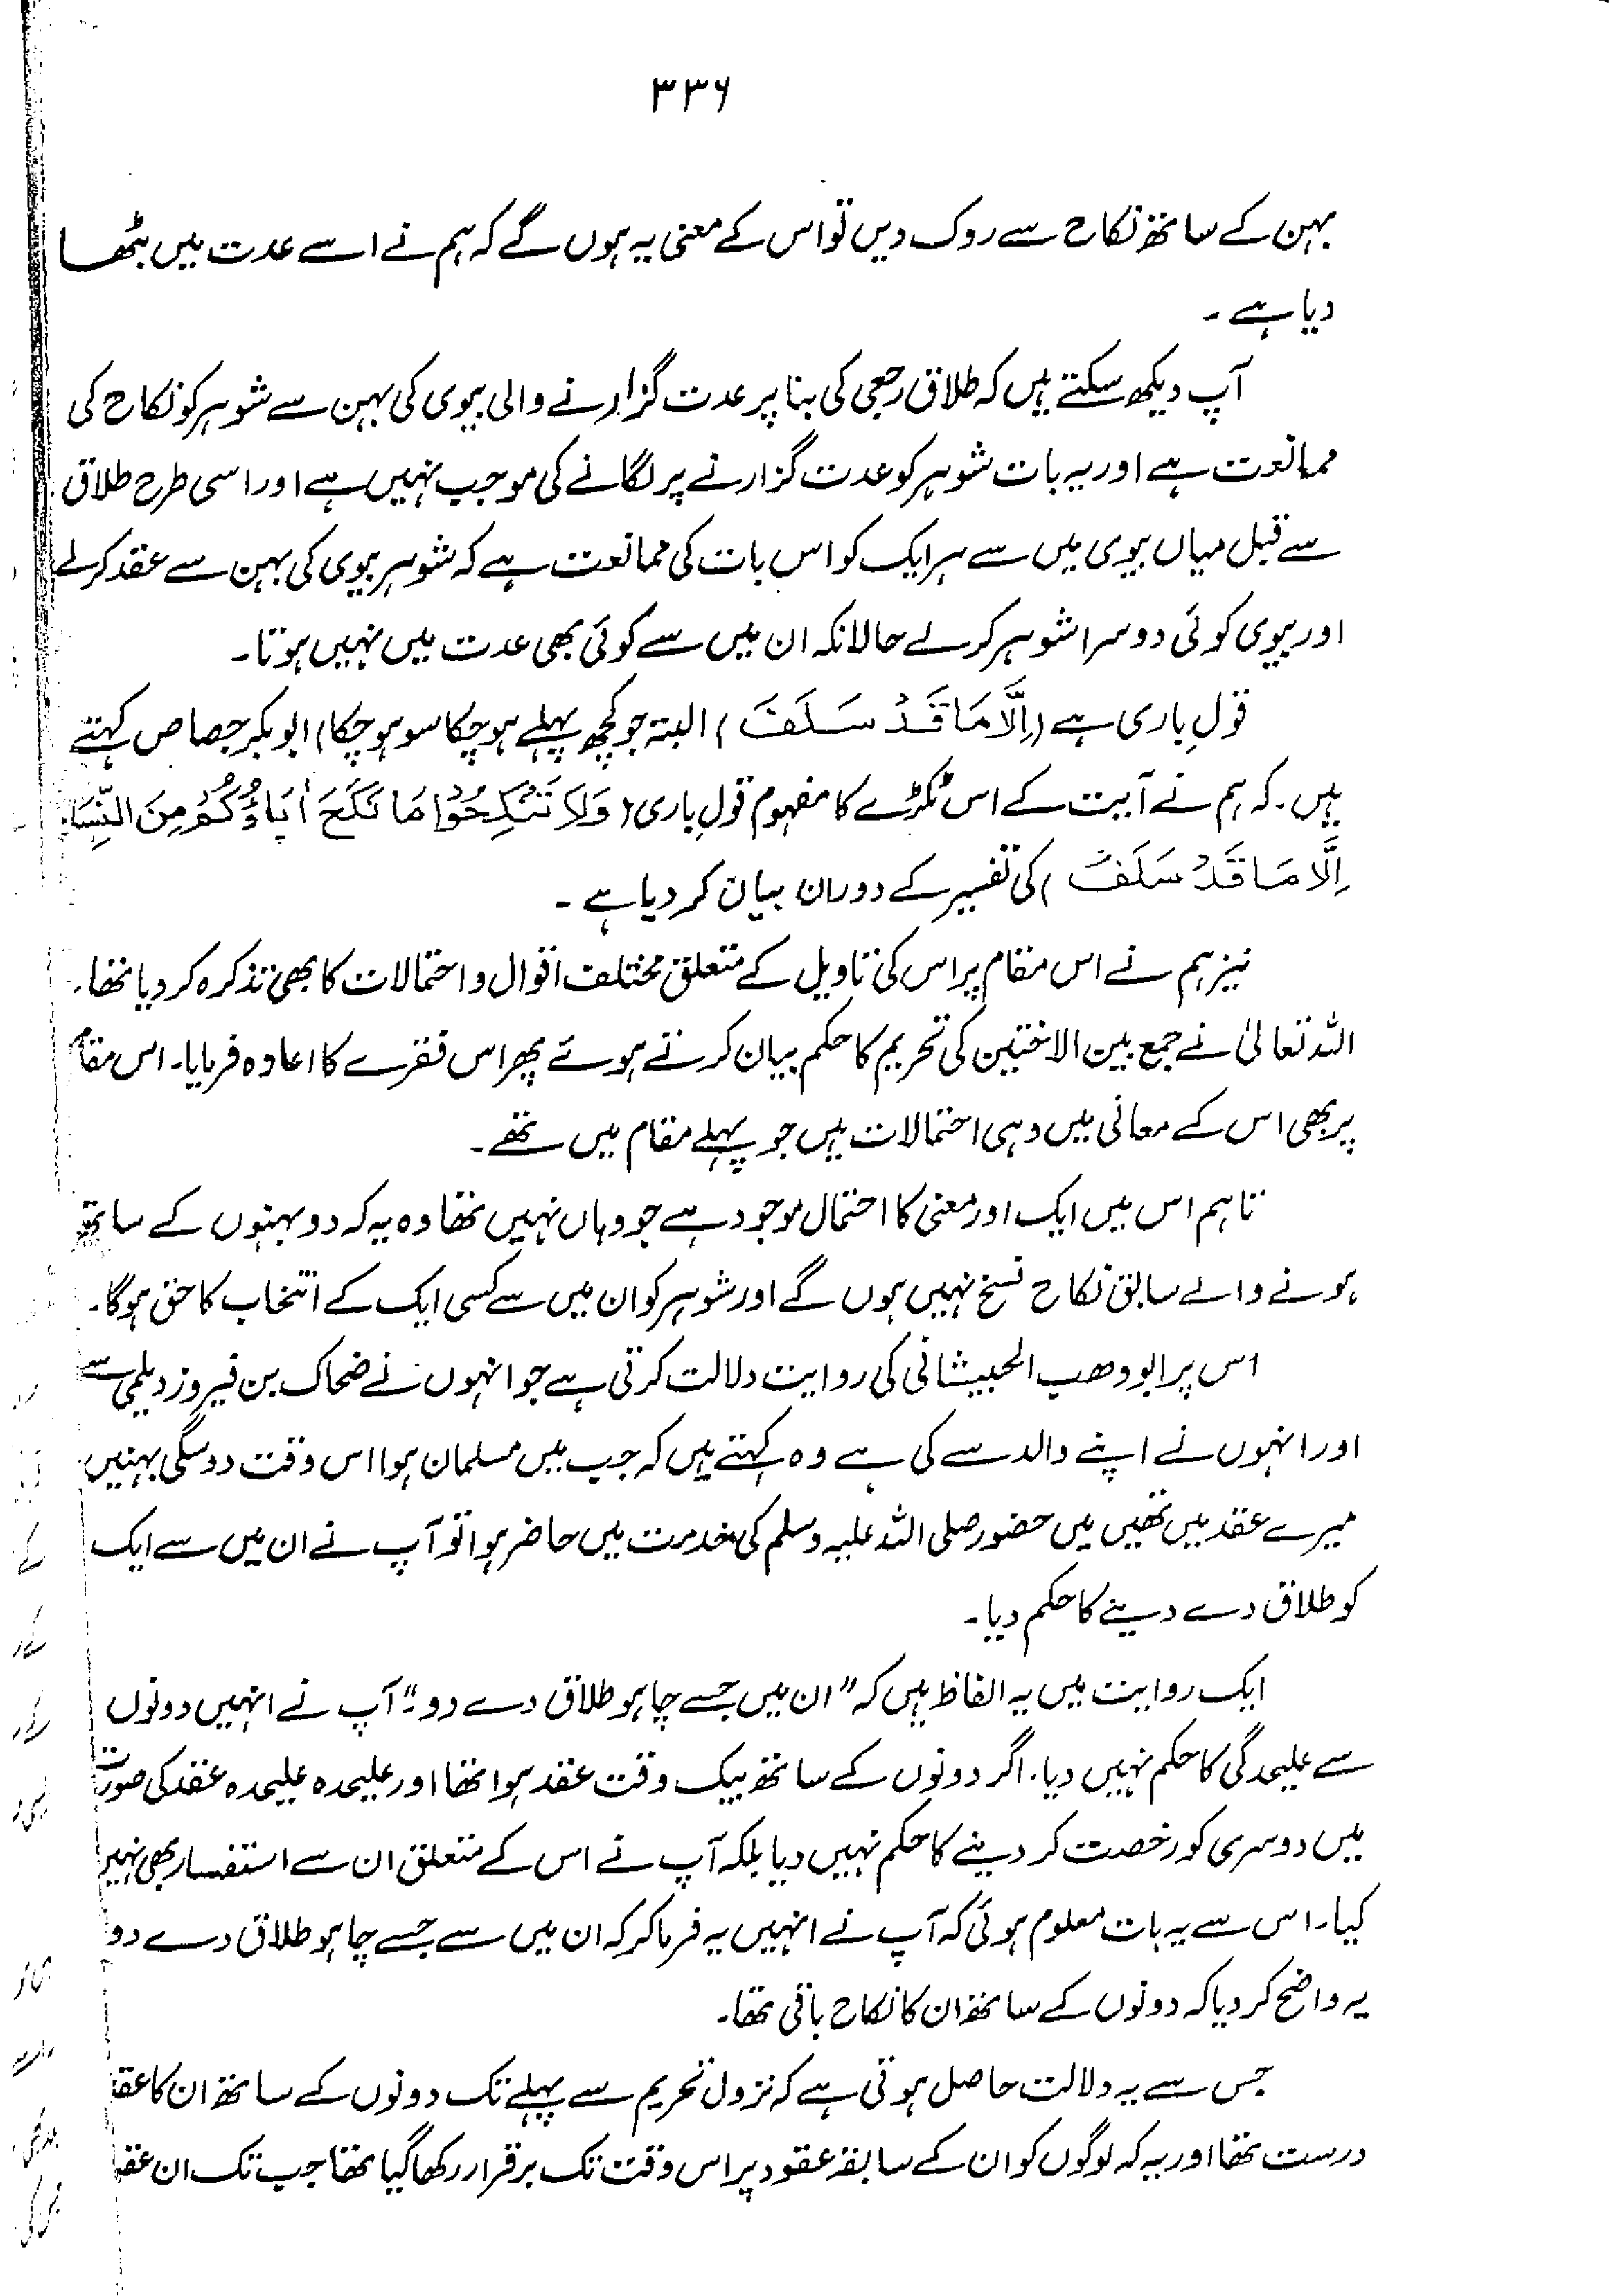 ۳۳۶
بہن کے ساتھ نکاح سے روک دیں تو اس کے معنی یہ ہوں گے کہ ہم نے اسے عدت میں بٹھا
دیا ہے ۔
آپ دیکھ سکتے ہیں کہ طلاق رجعی کی بنا پر عدت گزارنے والی بیوی کی بہن سے شوہر کو نکاح کی
ممانعت ہے اور یہ بات شوہر کو عدت گزارنے پر لگانے کی موجب نہیں ہے اور اسی طرح طلاق
سے قبل میاں بیوی میں سے ہر ایک کو اس بات کی ممانعت ہے کہ شوہر بیوی کی بہن سے عقد کرلے
اور بیوی کوئی دوسرا شوہر کرلے حالانکہ ان میں سے کوئی بھی عدت میں نہیں ہوتا۔
قولِ باری ہے (اِلَّا مَا قَدْ سَلَفَ) البتہ جو کچھ پہلے ہو چکا سو ہو چکا) ابوبکر جصاص کہتے
ہیں۔ کہ ہم نے آیت کے اس ٹکڑے کا مفہوم قولِ باری (وَلَا تَنْكِحُوْا مَا نَكَحَ اٰبَاؤُكُمْ مِنَ النِّسَاءِ
اِلَّا مَا قَدْ سَلَفَ) کی تفسیر کے دوران بیان کر دیا ہے ۔
نیز ہم نے اس مقام پر اس کی تاویل کے متعلق مختلف اقوال و احتمالات کا بھی تذکرہ کر دیا تھا۔
اللہ تعالیٰ نے جمع بین الاختین کی تحریم کا حکم بیان کرتے ہوئے پھر اس فقرے کا اعادہ فرمایا۔ اس مقام
پر بھی اس کے معانی میں وہی احتمالات ہیں جو پہلے مقام میں تھے ۔
تاہم اس میں ایک اور معنی کا احتمال موجود ہے جو وہاں نہیں تھا وہ یہ کہ دو بہنوں کے ساتھ
ہونے والے سابق نکاح فسخ نہیں ہوں گے اور شوہر کو ان میں سے کسی ایک کے انتخاب کا حق ہوگا۔
اس پر ابو وھب الحبیشانی کی روایت دلالت کرتی ہے جو انہوں نے ضحاک بن فیروز دیلمی سے
اور انہوں نے اپنے والد سے کی ہے وہ کہتے ہیں کہ جب میں مسلمان ہوا اس وقت دو سگی بہنیں
میرے عقد میں تھیں میں حضور صلی اللہ علیہ وسلم کی خدمت میں حاضر ہوا تو آپ نے ان میں سے ایک
کو طلاق دے دینے کا حکم دیا۔
ایک روایت میں یہ الفاظ ہیں کہ "ان میں جسے چاہو طلاق دے دو"۔ آپ نے انہیں دونوں
سے علیحدگی کا حکم نہیں دیا۔ اگر دونوں کے ساتھ بیک وقت عقد ہوا تھا اور علیحدہ علیحدہ عقد کی صورت
میں دوسری کو رخصت کر دینے کا حکم نہیں دیا بلکہ آپ نے اس کے متعلق ان سے استفسار بھی نہیں
کیا۔ اس سے یہ بات معلوم ہوئی کہ آپ نے انہیں یہ فرما کر کہ ان میں سے جسے چاہو طلاق دے دو
یہ واضح کر دیا کہ دونوں کے ساتھ ان کا نکاح باقی تھا۔
جس سے یہ دلالت حاصل ہوتی ہے کہ نزول تحریم سے پہلے تک دونوں کے ساتھ ان کا عقد
درست تھا اور یہ کہ لوگوں کو ان کے سابقہ عقود پر اس وقت تک برقرار رکھا گیا تھا جب تک ان عقو